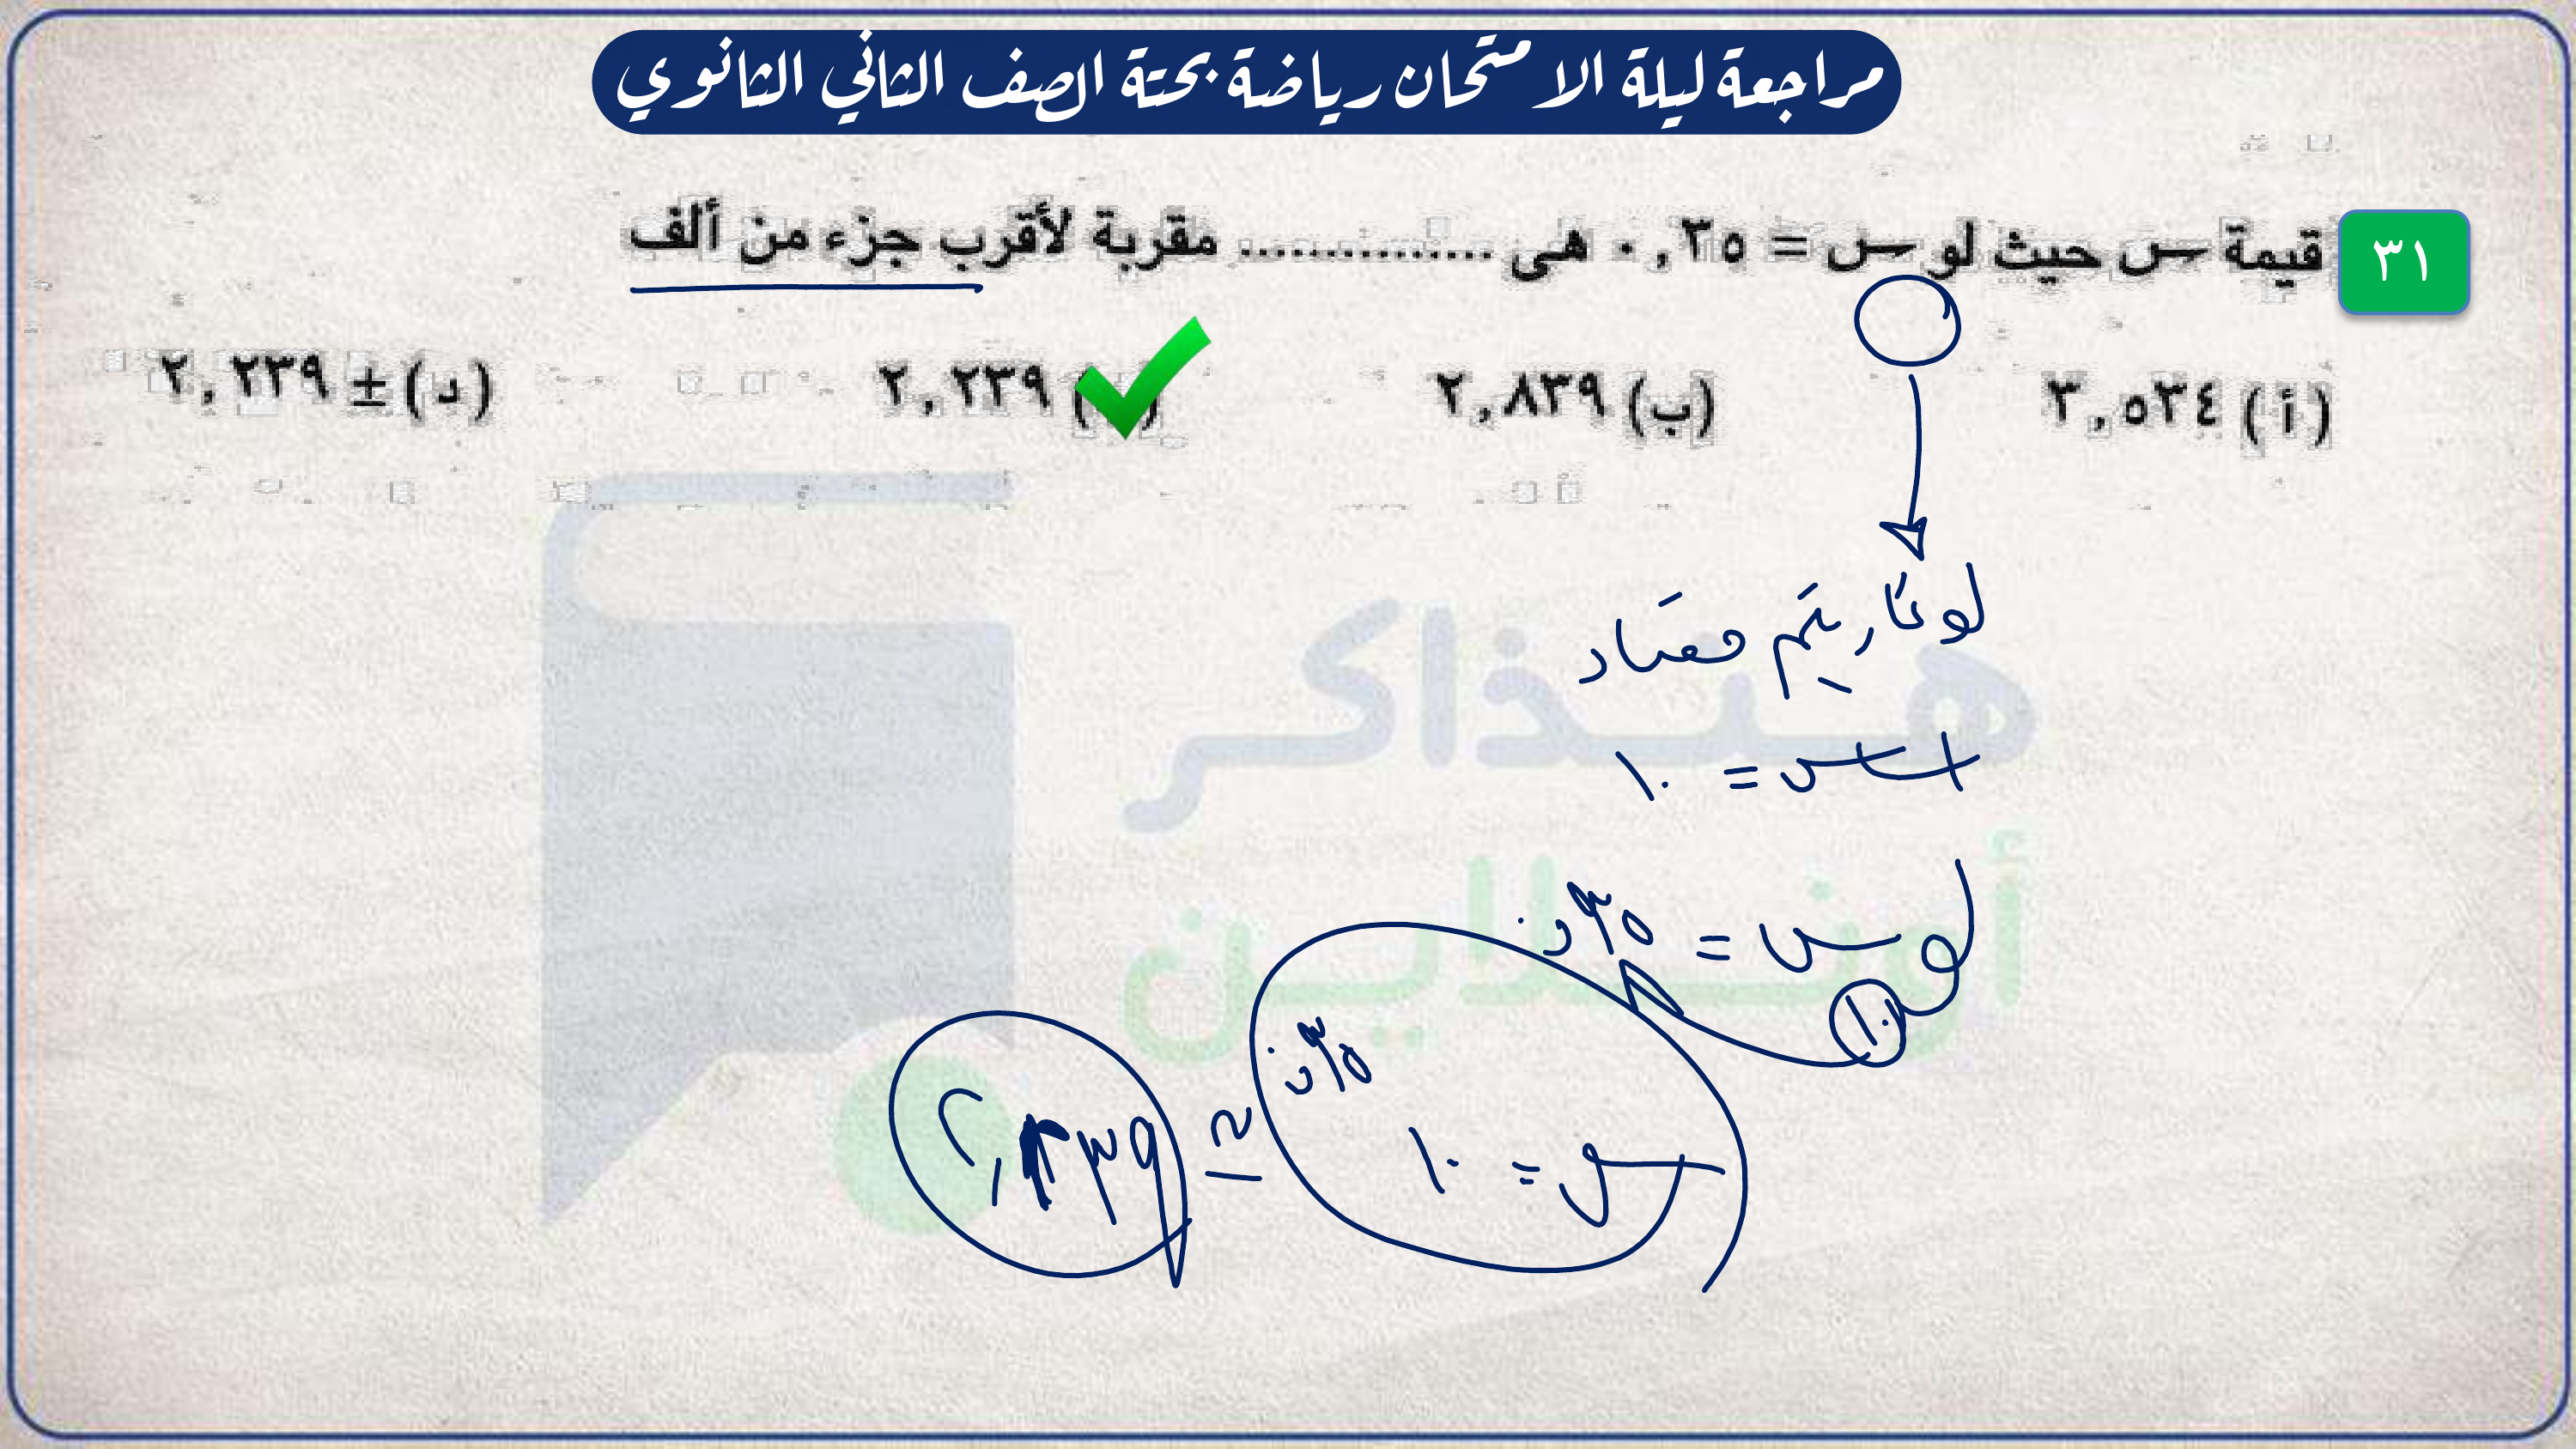 مراجعة ليلة الامتحان رياضة بحتة الصف الثاني الثانوي
٣١ قيمة س حيث لو س = ٠,٣٥ هى ............... مقربة لأقرب جزء من ألف
(أ) ٣,٥٣٤ (ب) ٢,٨٣٩ ٢,٢٣٩ (د) ± ٢,٢٣٩
لوغاريتم معتاد
اساس = ١٠
لو١٠ س = ٠,٣٥
س = ١٠ ٠,٣٥ ≃ ٢,٢٣٩
هنذاكر
أونلاين